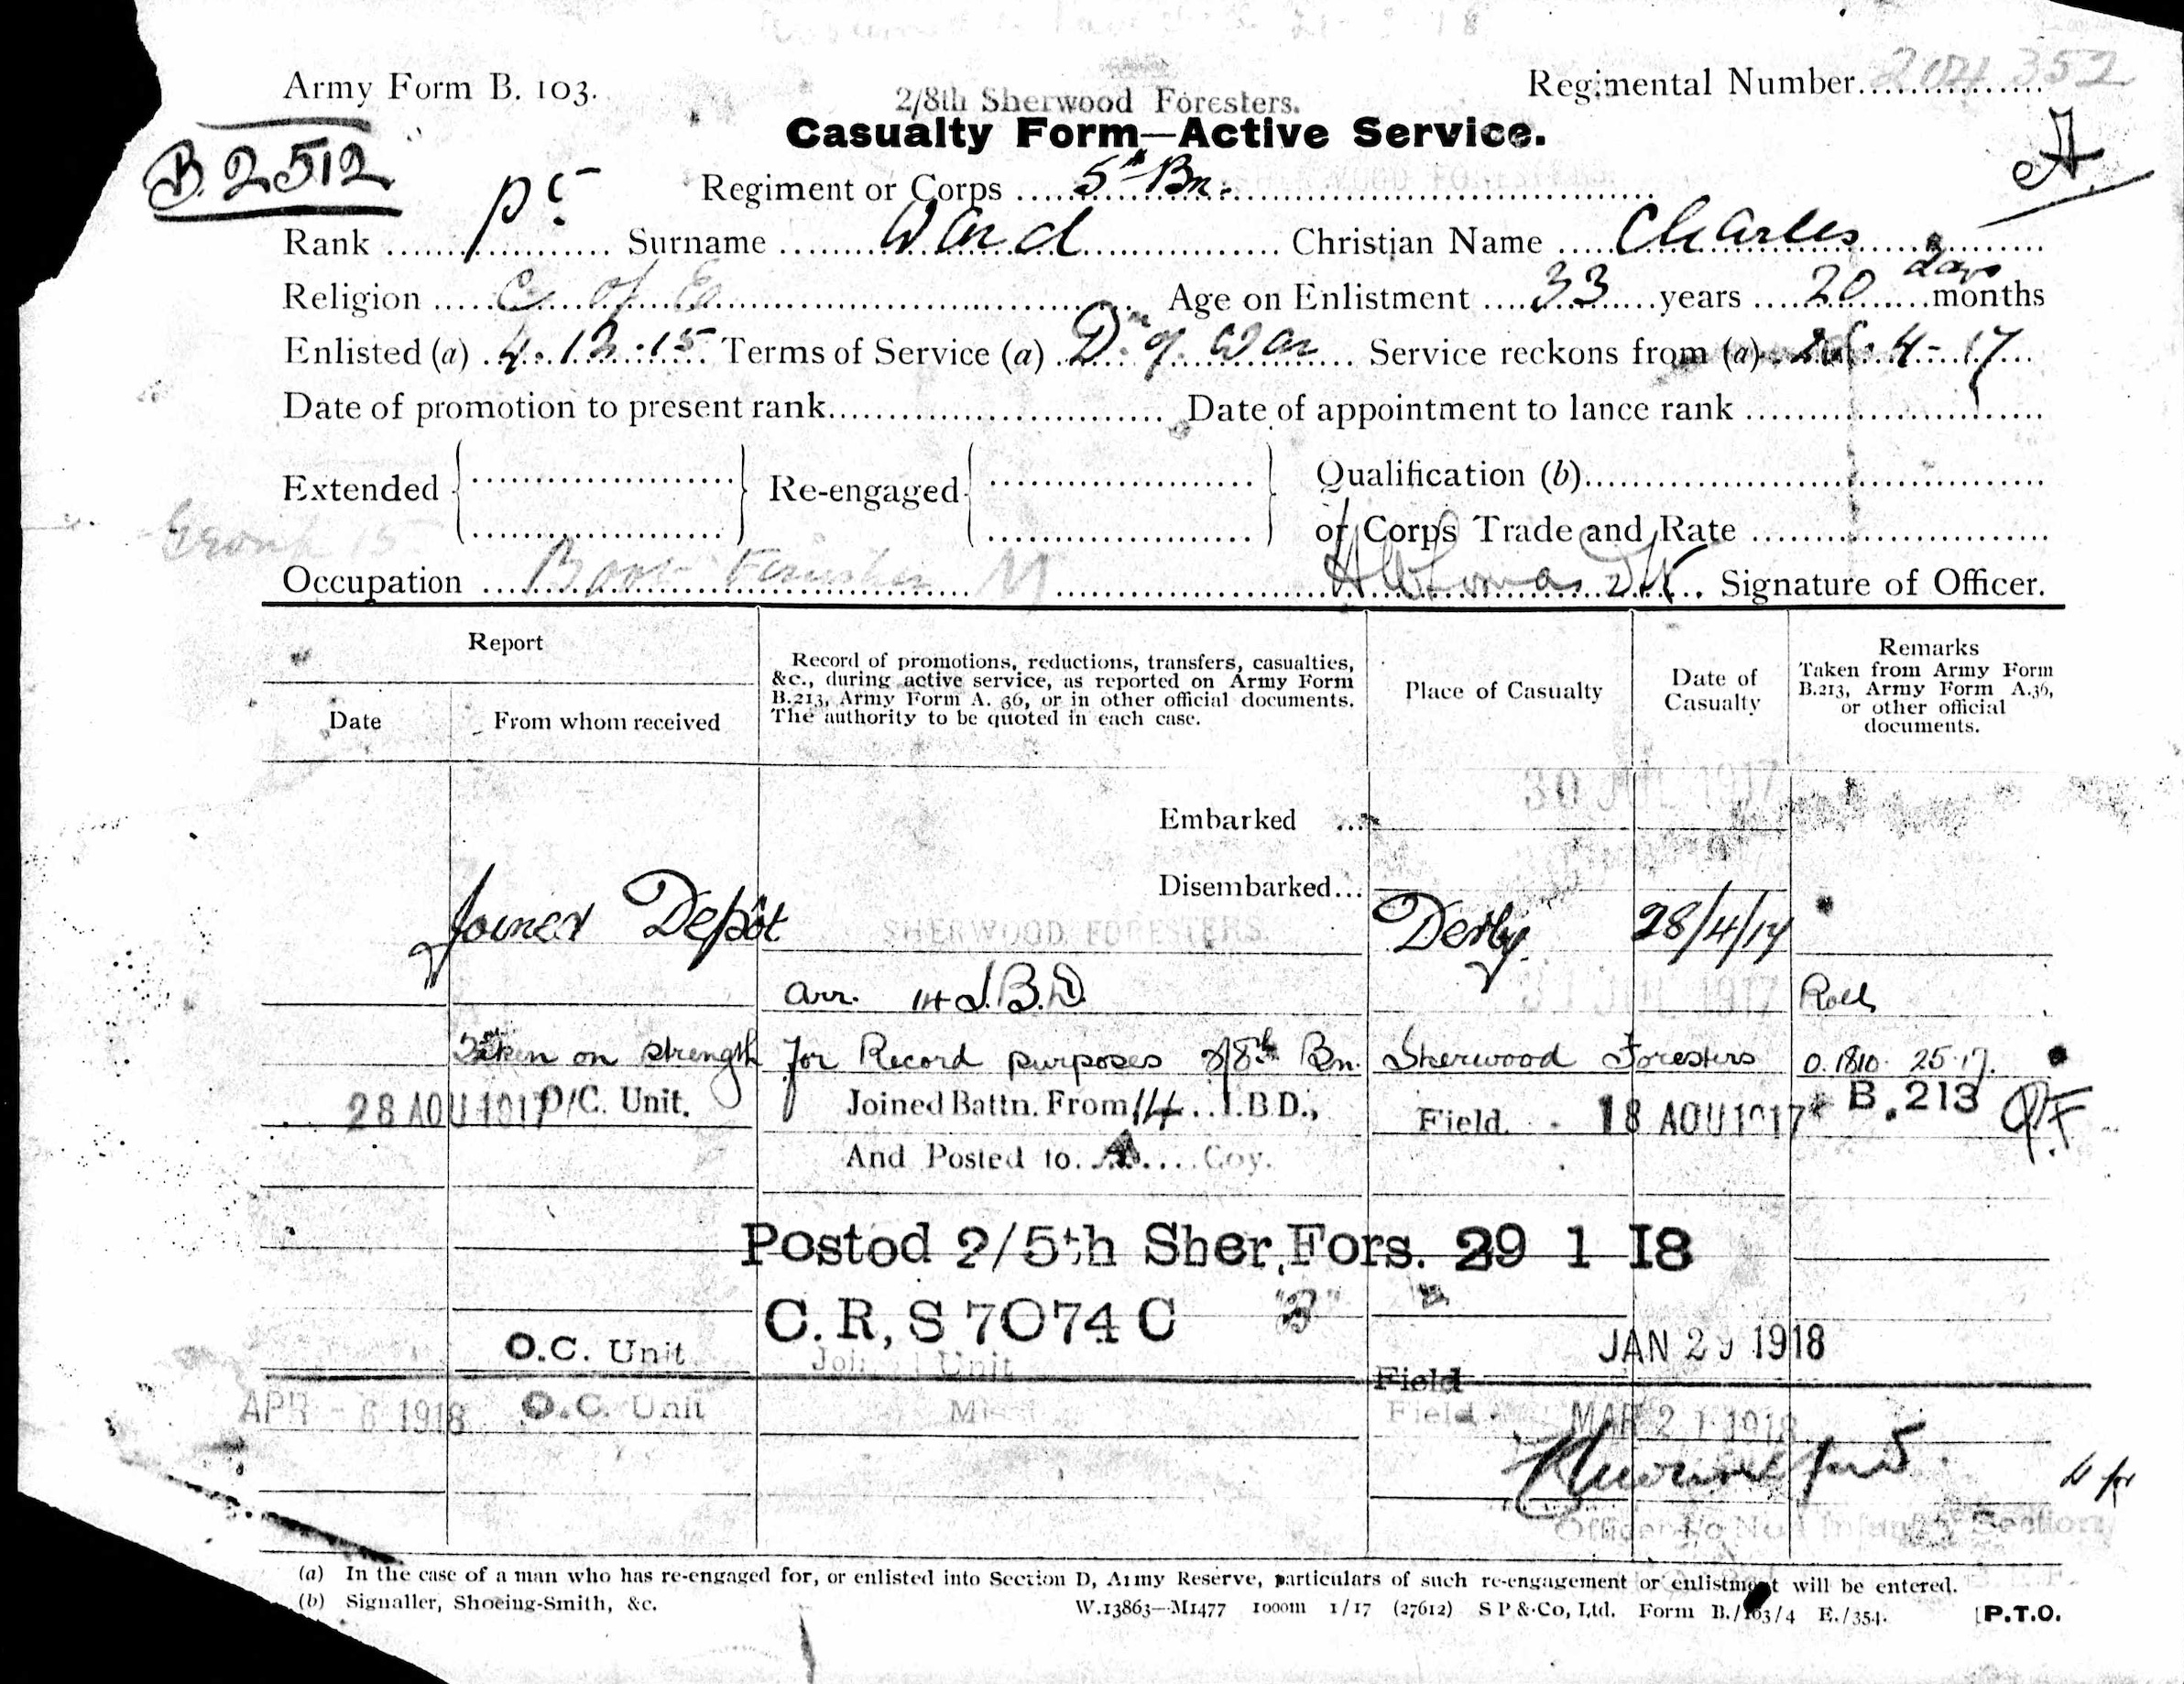 Army Form B. 103.
2/8th Sherwood Foresters.
Regimental Number 204352
Casualty Form—Active Service.
B. 2512
A.
Regiment or Corps 5th Bn.
Rank Pte Surname Ward Christian Name Charles
Religion C of E Age on Enlistment 33 years 20 days months
Enlisted (a) 4.12.15 Terms of Service (a) Dn of War Service reckons from (a) 4-17
Date of promotion to present rank Date of appointment to lance rank
Extended Re-engaged Qualification (b)
or Corps Trade and Rate
Group 15
Occupation Boot Finisher M Signature of Officer.
Report
Date
From whom received
Record of promotions, reductions, transfers, casualties,
&c., during active service, as reported on Army Form
B.213, Army Form A. 36, or in other official documents.
The authority to be quoted in each case.
Place of Casualty
Date of
Casualty
Remarks
Taken from Army Form
B.213, Army Form A.36,
or other official
documents.
30 JUL 1917
Embarked ...
Disembarked...
Joined Depôt SHERWOOD FORESTERS. Derby 28/4/17
arr. 14 I.B.D. 31 JUL 1917 Roll
Taken on strength for Record purposes 2/8th Bn. Sherwood Foresters O.1810. 25.17.
28 AOU 1917 O/C. Unit. Joined Battn. From 14 I.B.D., Field. 18 AOU 1917 B.213
And Posted to. A Coy.
Postod 2/5th Sher.Fors. 29 1 I8
C.R,S 7074 C "B"
O.C. Unit Joined Unit Field JAN 29 1918
APR - 6 1918 O.C. Unit Field MAR 21 1918
Officer i/c No. Infantry Section
(a) In the case of a man who has re-engaged for, or enlisted into Section D, Army Reserve, particulars of such re-engagement or enlistment will be entered.
(b) Signaller, Shoeing-Smith, &c.
W.13863—M1477 1000m 1/17 (27612) S P & Co, Ltd. Form B./103/4 E./354.
[P.T.O.